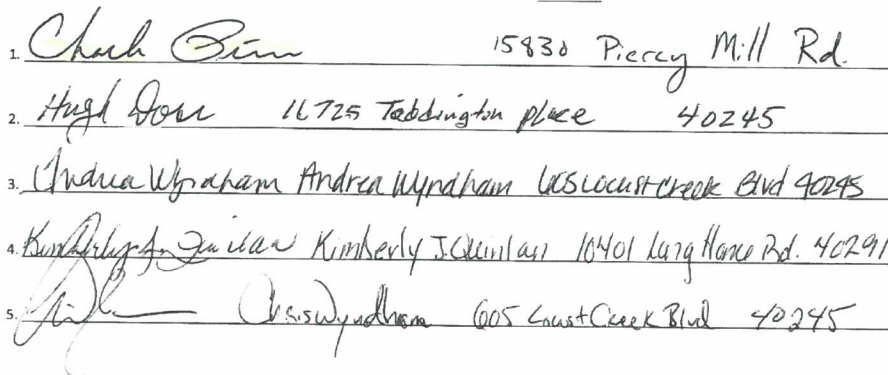 1. 15830 Piercy Mill Rd.
2. Hugh 16725 Taddington place 40245
3. Andrea Wyndham Andrea Wyndham 605 Locust Creek Blvd 40245
4. Kimberly J. Quinlan Kimberly J. Quinlan 10401 Rd. 40291
5. Chris Wyndham 605 Locust Creek Blvd 40245